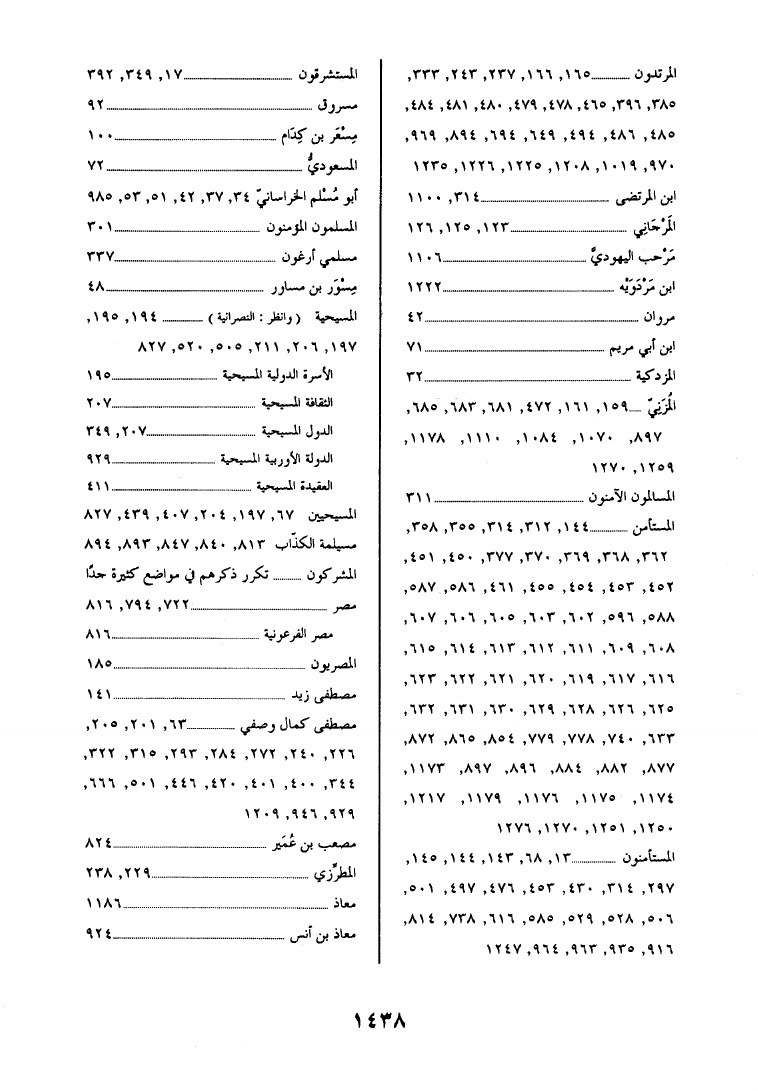 المرتدون ١٦٥, ١٦٦, ٢٣٧, ٢٤٣, ٣٣٣,
٣٨٥, ٣٩٦, ٤٦٥, ٤٧٨, ٤٧٩, ٤٨٠, ٤٨١, ٤٨٤,
٤٨٥, ٤٨٦, ٤٩٤, ٦٤٩, ٦٩٤, ٨٩٤, ٩٦٩,
٩٧٠, ١٠١٩, ١٢٠٨, ١٢٢٥, ١٢٢٦, ١٢٣٥
ابن المرتضى ٣١٤, ١١٠٠
المَرْجَاني ١٢٣, ١٢٥, ١٢٦
مَرْحب اليهوديّ ١١٠٦
ابن مَرْدَوَيْه ١٢٢٢
مروان ٤٢
ابن أبي مريم ٧١
المزدكية ٣٢
المُزَنِيّ ١٥٩, ١٦١, ٤٧٢, ٦٨١, ٦٨٣, ٦٨٥,
٨٩٧, ١٠٧٠, ١٠٨٤, ١١١٠, ١١٧٨,
١٢٥٩, ١٢٧٠
المسالمون الآمنون ٣١١
المستأمن ١٤٤, ٣١٢, ٣١٤, ٣٥٥, ٣٥٨,
٣٦٢, ٣٦٨, ٣٦٩, ٣٧٠, ٣٧٧, ٤٥٠, ٤٥١,
٤٥٢, ٤٥٣, ٤٥٤, ٤٥٥, ٤٦١, ٥٨٦, ٥٨٧,
٥٨٨, ٥٩٦, ٦٠٢, ٦٠٣, ٦٠٥, ٦٠٦, ٦٠٧,
٦٠٨, ٦٠٩, ٦١١, ٦١٢, ٦١٣, ٦١٤, ٦١٥,
٦١٦, ٦١٧, ٦١٩, ٦٢٠, ٦٢١, ٦٢٢, ٦٢٣,
٦٢٥, ٦٢٦, ٦٢٨, ٦٢٩, ٦٣٠, ٦٣١, ٦٣٢,
٦٣٣, ٧٤٠, ٧٧٨, ٧٧٩, ٨٥٤, ٨٦٥, ٨٧٢,
٨٧٧, ٨٨٢, ٨٨٤, ٨٩٦, ٨٩٧, ١١٧٣,
١١٧٤, ١١٧٥, ١١٧٦, ١١٧٩, ١٢١٧,
١٢٥٠, ١٢٥١, ١٢٧٠, ١٢٧٦
المستأمنون ١٣, ٦٨, ١٤٣, ١٤٤, ١٤٥,
٢٩٧, ٣١٤, ٤٣٠, ٤٥٣, ٤٧٦, ٤٩٧, ٥٠١,
٥٠٦, ٥٢٨, ٥٢٩, ٥٨٥, ٦١٦, ٧٣٨, ٨١٤,
٩١٦, ٩٣٥, ٩٦٣, ٩٦٤, ١٢٤٧
المستشرقون ١٧, ٣٤٩, ٣٩٢
مسروق ٩٢
مِسْعَر بن كِدَام ١٠٠
المسعوديُّ ٧٢
أبو مُسْلم الخراسانيّ ٣٤, ٣٧, ٤٢, ٥١, ٥٣, ٩٨٥
المسلمون المؤمنون ٣٠١
مسلمي أرغون ٣٣٧
مِسْوَر بن مساور ٤٨
المسيحية (وانظر: النصرانية) ١٩٤, ١٩٥,
١٩٧, ٢٠٦, ٢١١, ٥٠٥, ٥٢٠, ٨٢٧
الأسرة الدولية المسيحية ١٩٥
الثقافة المسيحية ٢٠٧
الدول المسيحية ٢٠٧, ٣٤٩
الدولة الأوربية المسيحية ٩٢٩
العقيدة المسيحية ٤١١
المسيحيين ٦٧, ١٩٧, ٢٠٤, ٤٠٧, ٤٣٩, ٨٢٧
مسيلمة الكذّاب ٨١٣, ٨٤٠, ٨٤٧, ٨٩٣, ٨٩٤
المشركون تكرر ذكرهم في مواضع كثيرة جدًا
مصر ٧٢٢, ٧٩٤, ٨١٦
مصر الفرعونية ٨١٦
المصريون ١٨٥
مصطفى زيد ١٤١
مصطفى كمال وصفي ٦٣, ٢٠١, ٢٠٥,
٢٢٦, ٢٤٠, ٢٧٢, ٢٨٤, ٢٩٣, ٣١٥, ٣٢٢,
٣٤٤, ٤٠٠, ٤٠١, ٤٢٠, ٤٤٦, ٥٠١, ٦٦٦,
٩٢٩, ٩٤٦, ١٢٠٩
مصعب بن عُمَير ٨٢٤
المطرِّزي ٢٢٩, ٢٣٨
معاذ ١١٨٦
معاذ بن أنس ٩٢٤
١٤٣٨